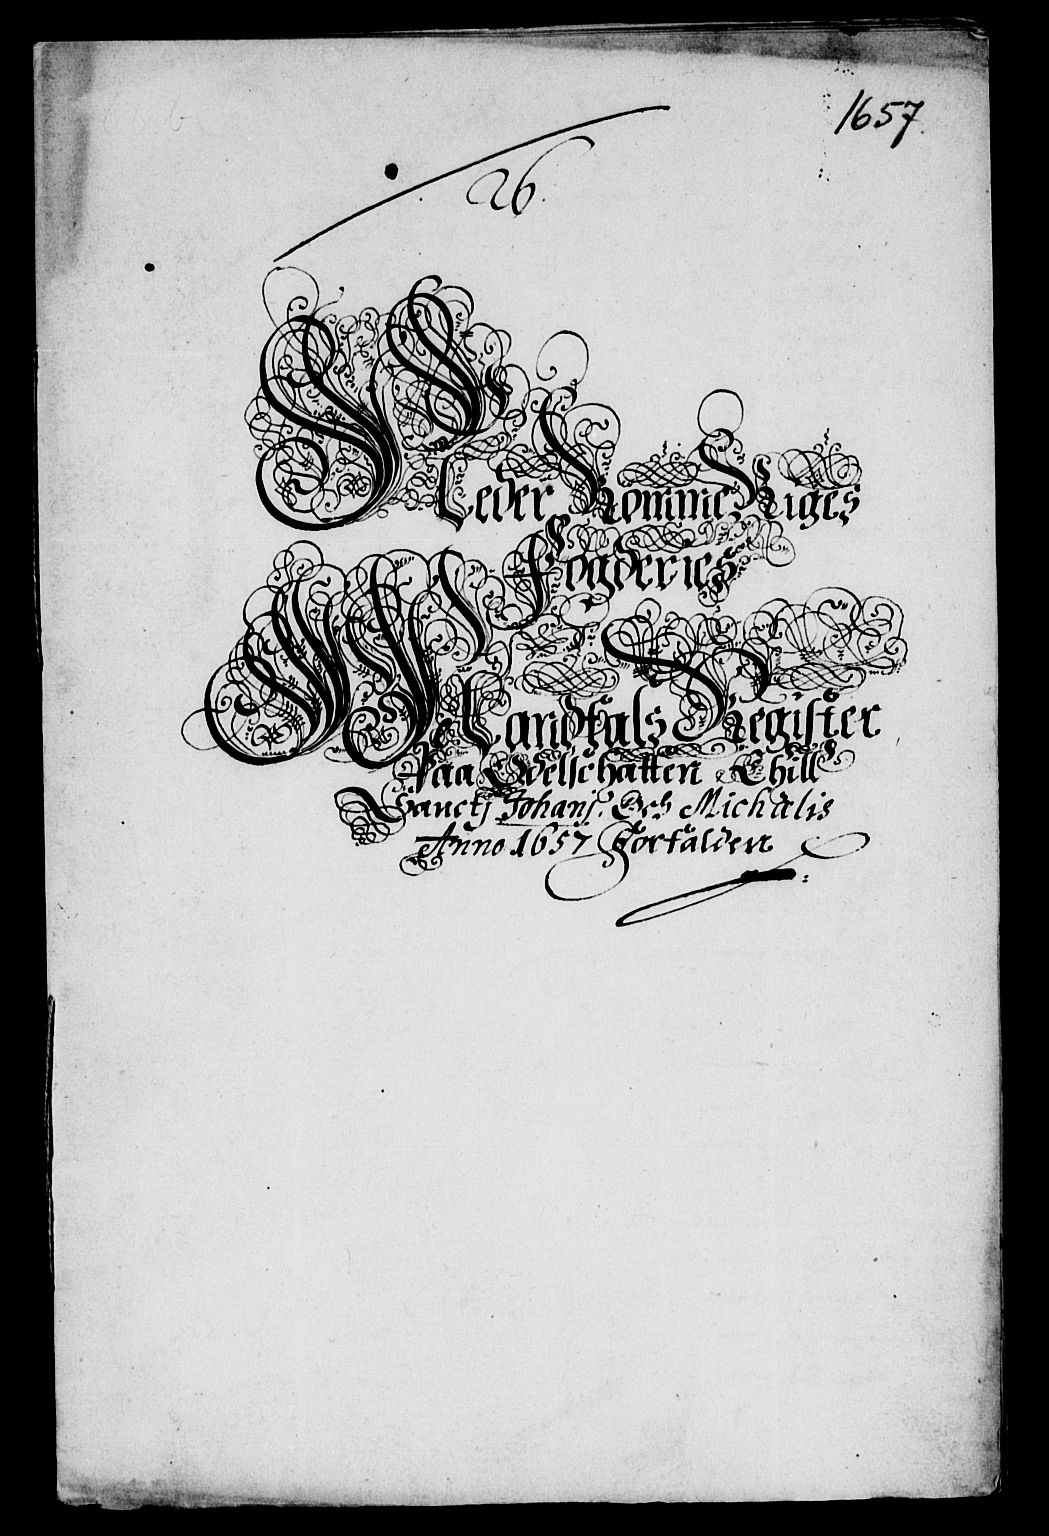 1657
26
Neder Romme Riges
Fogderies
Mandtals Register
Paa Odelschatten Thill
Sanctj Johanj Och Michaelis
Anno 1657 Forfalden